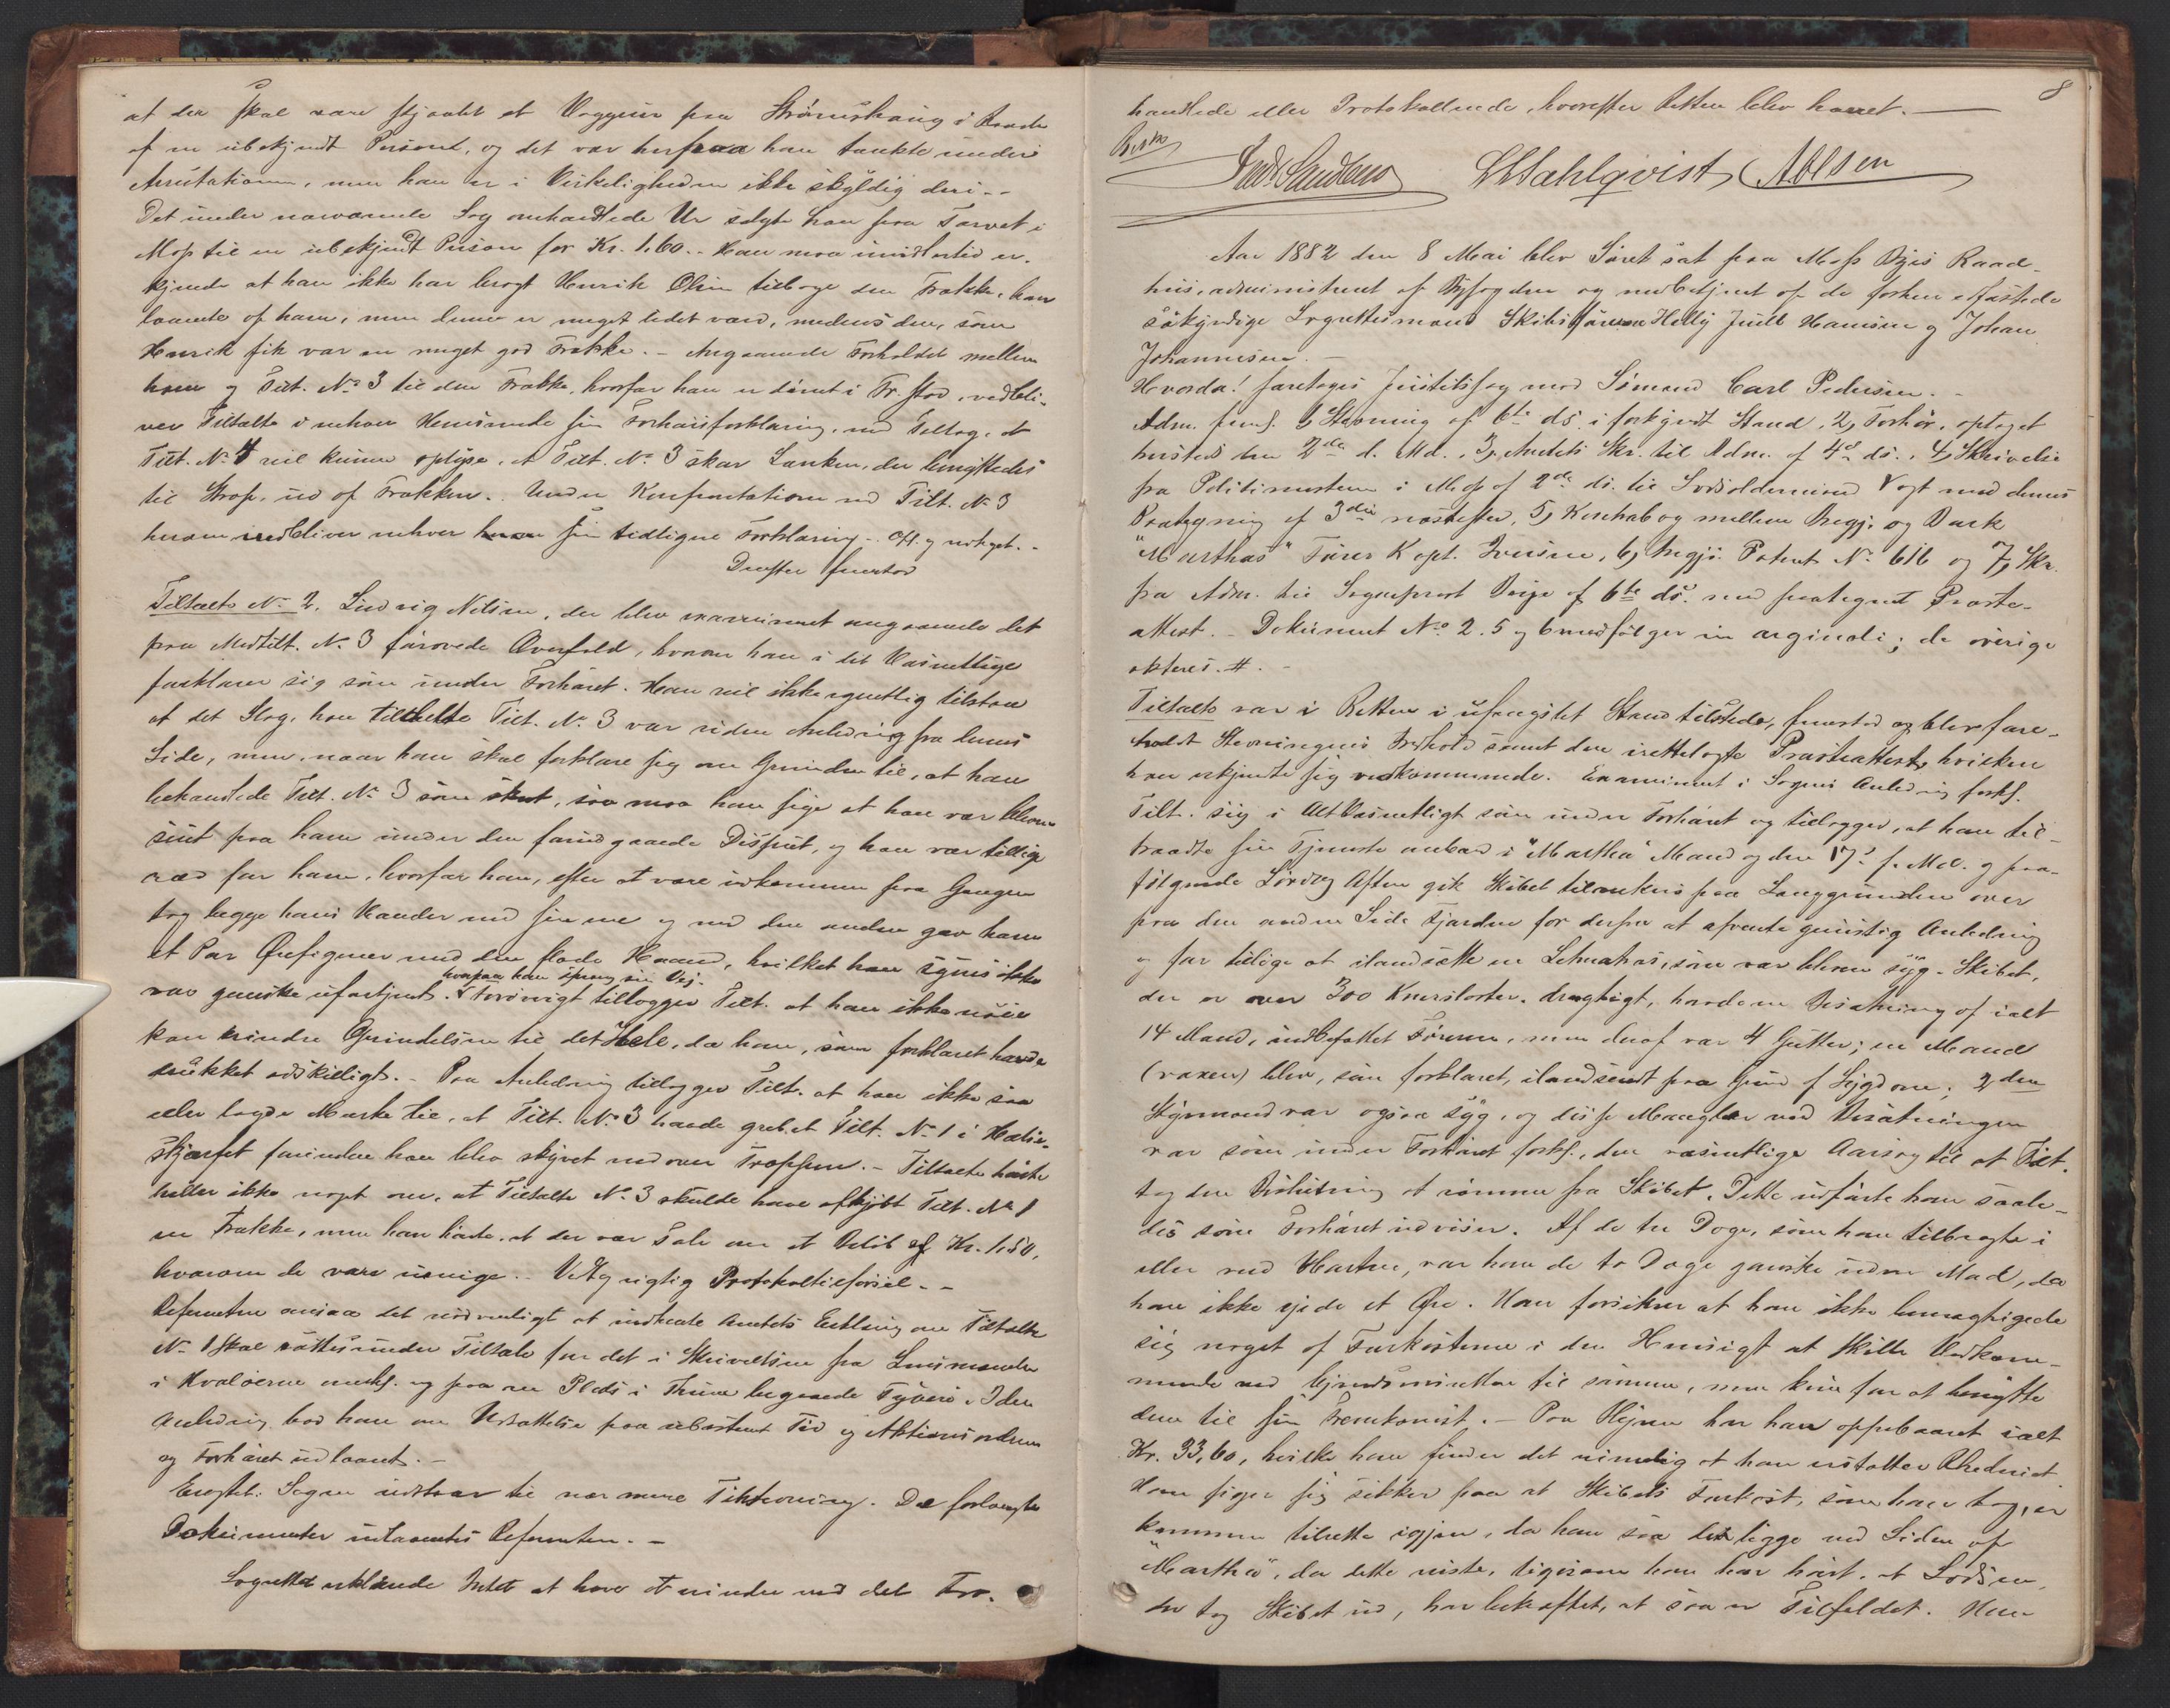 at der skal være stjaalet et Væggeur paa Strømshaug i Raade
af en ubekjendt Person, og det var herpaa han tænkte under
Arrestationen, men han er i Virkeligheden ikke skyldig deri. -
Det under nærværende Sag omhandlede Ur solgte han paa Torvet i
Moss til en ubekjendt Person for Kr. 1,60. - Han maa imidlertid er-
kjende at han ikke har bragt Henrik Olsen tilbage den Frakke, han
laante af ham, men denne er meget lidet værd, medens den, som
Henrik fik var en meget god Frakke. - Angaaende Forholdet mellem
ham og Tilt. No 3 til den Frakke, hvorfor han er dømt i Fr.stad, vedbli-
ver Tiltalte i enhver Henseende sin Forhørsforklaring, med Tillæg, at
Tilt. No 4 vil kunne oplyse, at Tilt. No 3 skar Lænken, der benyttedes
til Strop, ud af Frakken. Under Konfrontationen med Tilt. No 3
herom vedbliver enhver sin tidligere Forklaring. - og vedtaget. -
Derefter fremstod
Tiltalte No 2. Ludvig Nilsen, der blev examineret angaaende det
paa Medtilt. No 3 førøvede Overfald, hvorom han i det Væsentlige
forklarer sig som under Forhøret. Han vil ikke egentlig tilstaa
at det Slag, han tildelte Tilt. No 3 var uden Anledning fra dennes
Side, men, naar han skal forklare sig om Grunden til, at han
behandlede Tilt. No 3 som skeet, saa maa han sige at han var bleven
sint paa ham under den forudgaaende Disput, og han var tillige
ræd for ham, hvorfor han, efter at være udkommen paa Gangen
tog begge hans Hænder med sin ene og med den anden gav ham
et Par Ørefigener med den flade Haand, hvilket han synes ikke
hvorpaa han sprang sin Vej.
var ganske ufortjent. Forøvrigt tillægger Tilt. at han ikke nøie
kan erindre Grundelsen til det Hele, da han, som forklaret havde
drukket adskilligt. - Paa Anledning tillægger Tilt. at han ikke saa
eller lagde Mærke til, at Tilt. No 3 havde grebet Tilt. No 1 i Hals-
skjærfet forinden han blev skjøvet nedover Trappen. - Tiltalte hørte
heller ikke noget om, at Tiltalte No 3 skulde have afkjøbt Tilt. No 1
en Frakke, men han hørte, at der var Tale om et Beløb af Kr. 1,50,
hvorom de vare uenige. - Vedtog rigtig Protokoltilførsel. -
Defensor ansaa det nødvendigt at indhente Amtets Erklæring om Tiltalte
No 1 skal sættes under Tiltale for det i Skrivelsen fra Lensmanden
i Hvaløerne omhl. og paa en Plads i Thune begaaede Tyveri. I den
Anledning bad han om Udsættelse paa ubestemt Tid og Aktionsordren
og Forhøret udlaant. -
Eragtet: Sagen udstaar til nærmere Tiltevning. De forlangte
Dokumenter udlaantes Defensoren. -
Lagrettet erklærede Intet at have at erindre ved det For-

8
handlede eller Protokollerede, hvorefter Retten blev hævet. -
Beske Fredr Sandberg LWahlqvist AOlsen
Aar 1882 den 8 Mai blev Søret sat paa Moss Byes Raad-
hus, administreret af Byfogden og medbetjent af de forhen edfæstede
søkyndige Lagrettesmænd Skibsfører Helly Juell Hansen og Johan
Johannesen. -
Hvorda! foretoges Justitssag mod Sømand Carl Pedersen. -
Adm. freml. 1, Stevning af 6te ds. i forkyndt Stand, 2, Forhør, optaget
hersteds den 2de d. Md., 3, Amtets Skr. til Adm. af 4de ds., 4, Skrivelse
fra Politimesteren i Moss af 2de ds. til Lodsoldermand Vogt med dennes
Paategning af 3die næstefter, 5, Kontrabog mellem Angj. og Bark
"Marthas" Fører Kapt. Iversen, 6, Angjs. Patent No 616 og 7, Skr.
fra Adm. til Sogneprest Beige af 6te ds. med paategnet Præste-
attest. - Dokument No 2. 5 og 6 medfølger in originali; de øvrige
akteres. #. -
Tiltalte var i Retten i ufængslet Stand tilstede, fremstod og blev fore-
holdt Stevningens Indhold samt den irettelagte Præsteattest, hvilken
han erkjendte sig vedkommende. Examineret i Sagens Anledning forkl.
Tilt. sig i Alt Væsentligt som under Forhøret og tillægger, at han til-
traadte sin Tjeneste ombord i "Martha" Mand og den 17de f. Md. og paa-
følgende Lørdag Aften gik Skibet tilankers paa Langgrunden over
paa den anden Side Fjorden for derfra at afvente gunstig Anledning
og for tillige at ilandsætte en Letmatros, som var bleven syg. Skibet,
der er over 300 Kmerslæster drægtigt, havde en Besætning af ialt
14 Mand, indbefattet Føreren, men deraf var 4 Gutter; en Mand
(voxen) blev, som forklaret, ilandsendt paa Grund af Sygdom; 2den
Styrmand var ogsaa syg, og disse Mangler ved Besætningen
var som under Forhøret forkl., den væsentlige Aarsag til at Tilt.
tog den Beslutning at rømme fra Skibet. Dette udførte han saale-
des som Forhøret udviser. Af de tre Dage, som han tilbragte i
eller ved Horten, var han de to Dage ganske uden Mad, da
han ikke eiede et Øre. Han forsikrer at han ikke bemægtigede
sig noget af Farkosterne i den Hensigt at skille Vedkom-
mende ved Eiendomsretten til samme, men kun for at benytte
dem til sin Fremkomst. - Paa Hyren har han oppebaaret ialt
Kr. 33,60, hvilke han finder det rimelig at han erstatter Rhederiet
Han siger sig sikker paa at Skibets Farkost, som han tog, er
kommen tilrette igjen, da han saa den ligge ved Siden af
"Martha", da dette reiste, ligesom han har hørt, at Lodsen,
der tog Skibet ud, har bekræftet, at saa er Tilfældet. Han